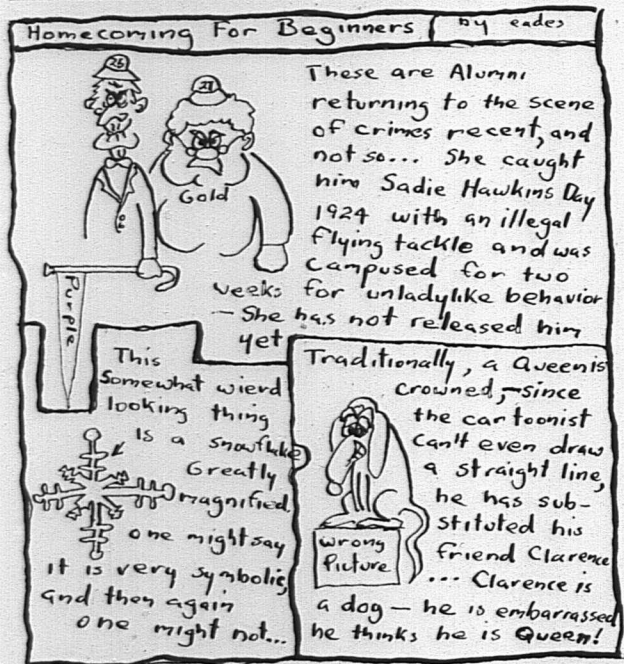 Homecoming For Beginners by eades
26
27
These are Alumni
returning to the scene
of crimes recent, and
not so... She caught
him Sadie Hawkins Day
1924 with an illegal
flying tackle and was
campused for two
weeks for unladylike behavior
— She has not released him
yet
Gold
Purple
This
Somewhat wierd
looking thing
is a snowflake
Greatly
magnified
one might say
it is very symbolic,
and then again
one might not...
Traditionally, a Queen is
crowned, — since
the cartoonist
can't even draw
a straight line,
he has sub-
stituted his
friend Clarence
... Clarence is
a dog — he is embarrassed
he thinks he is Queen!
Wrong
Picture